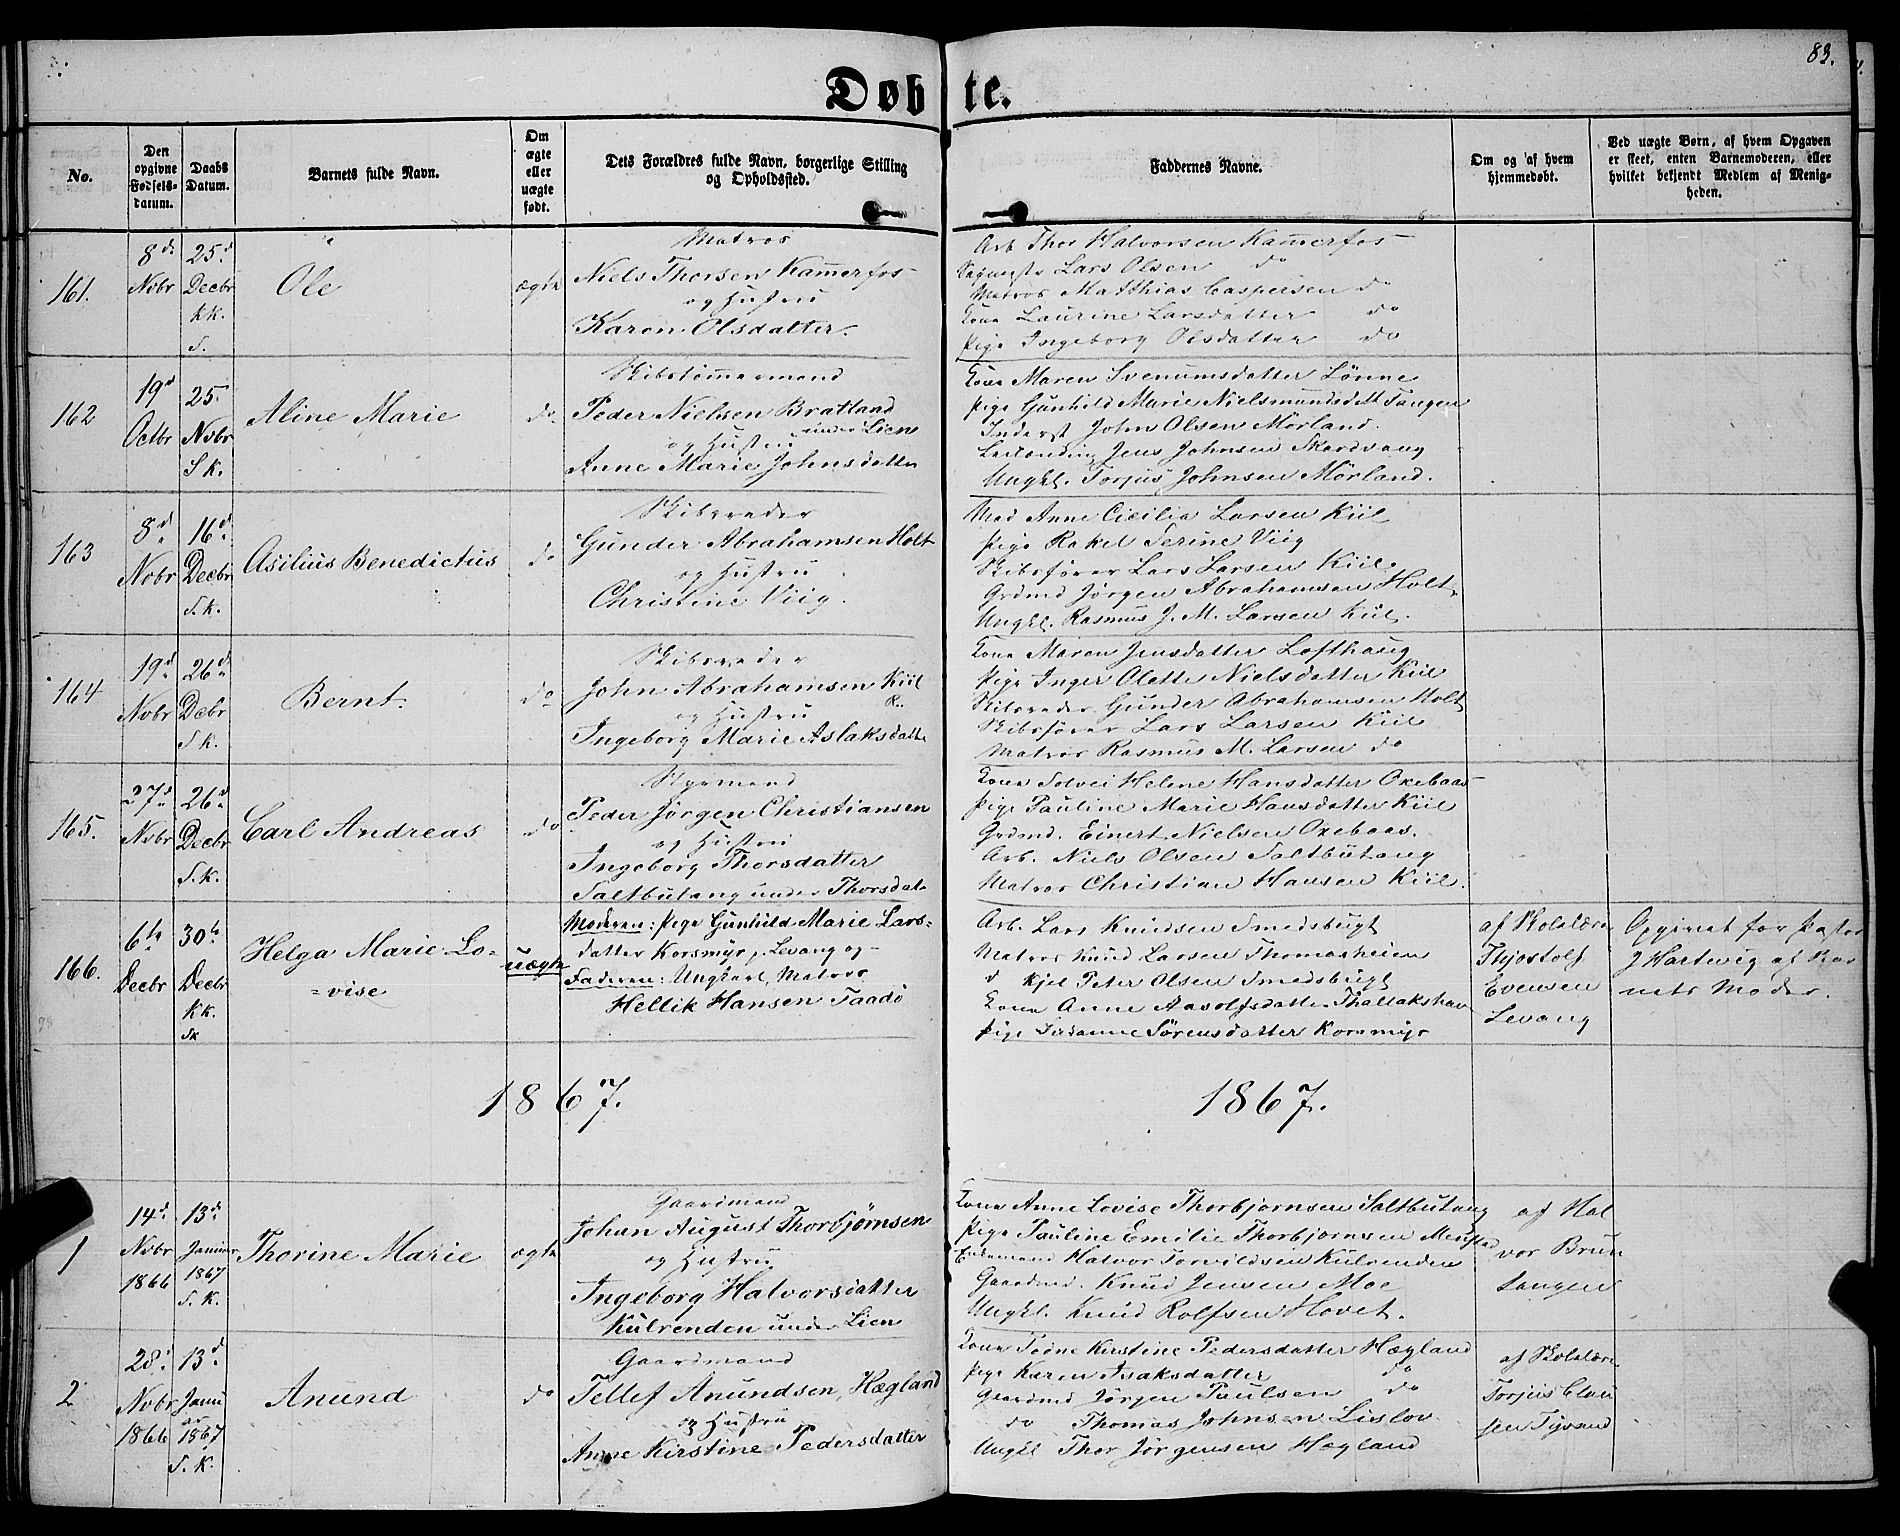 83.
Døbte.
No.
Den opgivne Fødsels-datum.
Daabs Datum.
Barnets fulde Navn.
Om ægte eller uægte født.
Dets Forældres fulde Navn, borgerlige Stilling og Opholdssted.
Faddernes Navne.
Om og af hvem hjemmedøbt.
Ved uægte Børn, af hvem Opgaven er skeet, enten Barnemoderen, eller hvilket bekjendt Medlem af Menigheden.
161.
8d Nvbr
25d Decbr KK. S.
Ole
ægte
Matros
Niels Thorsen Kammerfos
og Hustru
Karen Olsdatter.
Arb Thor Halvorsen Kammerfos
Lars Olsen do
Matros Matthias Caspersen do
Kone Laurine Larsdatter do
Pige Ingeborg Olsdatter do
162
19d Octbr
25. Nvbr S K.
Aline Marie
do
Skibstømmermand
Peder Nielsen Bratland
under Lien
og Hustru
Anne Marie Johnsdatter
Kone Maren Svenumsdatter Lønne
Pige Gunhild Marie Nielsmundsdtt Tangen
Inderst John Olsen Mørland.
Jens Johnsen Skardvang
Ungkl. Torjus Johnsen Mørland.
163
8d Nvbr
16d Decbr S. K.
Asilius Benedictus
do
Skibsreder
Gunder Abrahamsen Holt
og Hustru
Christine Viig.
Mad Anne Cicilia Larsen Kiil
Pige Rakel Serine Viig
Skibsfører Lars Larsen Kiil
Grdmd Jørgen Abrahamsen Holt
Ungkl. Rasmus J. M. Larsen Kiil.
164
19d Nvbr
26d Debr S K.
Bernt.
do
Skibsreder
John Abrahamsen Kiil
R.
og Hustru
Ingeborg Marie Aslaksdatter
Kone Maren Jensdatter Lofthaug
Pige Inger Olette Nielsdatter Kiil
Skibsreder Gunder Abrahamsen Holt
Skibsfører Lars Larsen Kiil
Matros Rasmus M. Larsen do
165.
27d Nvbr
26d Decbr S. K.
Carl Andreas
do
Styrmand
Peder Jørgen Christiansen
og Hustru
Ingeborg Thorsdatter
Saltbutang under Thorsdal
Kone Solvei Helene Hansdatter Oxebaas
Pige Pauline Marie Hansdatter Kiil
Grdmd. Einert Nielsen Oxebaas.
Arb. Niels Olsen Saltbutang
Matros Christian Hansen Kiil.
166.
6te Decbr
30te Decbr KK. SK
Helga Marie Lo-
=vise
uægte
Moderen: Pige Gunhild Marie Lars-
datter Korsmyr p. Levang og
Faderen: Ungkarl, Matros
Hellik Hansen Taadø
Arb. Lars Knudsen Smedsbugt
Matros Knud Larsen Thomasheien
d Kjel Peter Olsen Smedsbugt
Kone Anne Aasolfsdatter Thallakshavn
Pige Susanne Sørensdatter Korsmyr
af Skolelærer
Thjostolf
Evensen
Levang
Opgivet for Pastor
J Hartwig af Bar
nets Moder.
1867.
1867.
1
14d Nvbr 1866
13d Januar 1867 S. K.
Thorine Marie
ægte
Gaardmand
Johan August Thorbjørnsen
og Hustru
Ingeborg Halvorsdatter
Kulrenden under Lien
Kone Anne Lovise Thorbjørnsen Saltbutang
Pige Pauline Emilie Thorbjørnsen Menstad
Halvor Torvildsen Kulrenden
Gaardmd. Knud Jensen Moe
Ungkl. Knud Rolfsen Hovet.
af Hal
vor Brun
tangen
2
28d Nvbr 1866
13d Janu ar 1867 S. K.
Anund
do
Gaardmand
Tellef Anundsen, Hægland
og Hustru
Anne Kirstine Pedersdatter
Kone Todne Kirstine Pedersdatter Hægland
Pige Karen Isaksdatter do
Gaardmd Jørgen Paulsen do
do Thomas Johnsen Lislov
Ungkl Thor Jørgensen Hægland
af Skolelærer
Torjus Clau
sen Tyvand